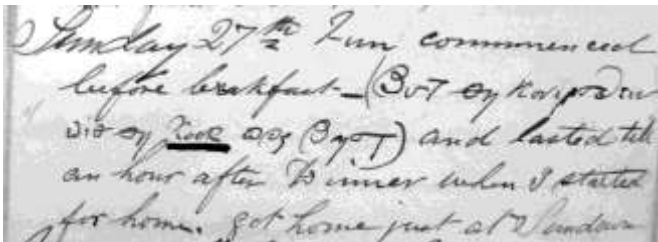 Sunday 27th Fun commenced
before brekfast — (
and lasted till
an hour after Dinner when I started
for home. got home just at Sundown